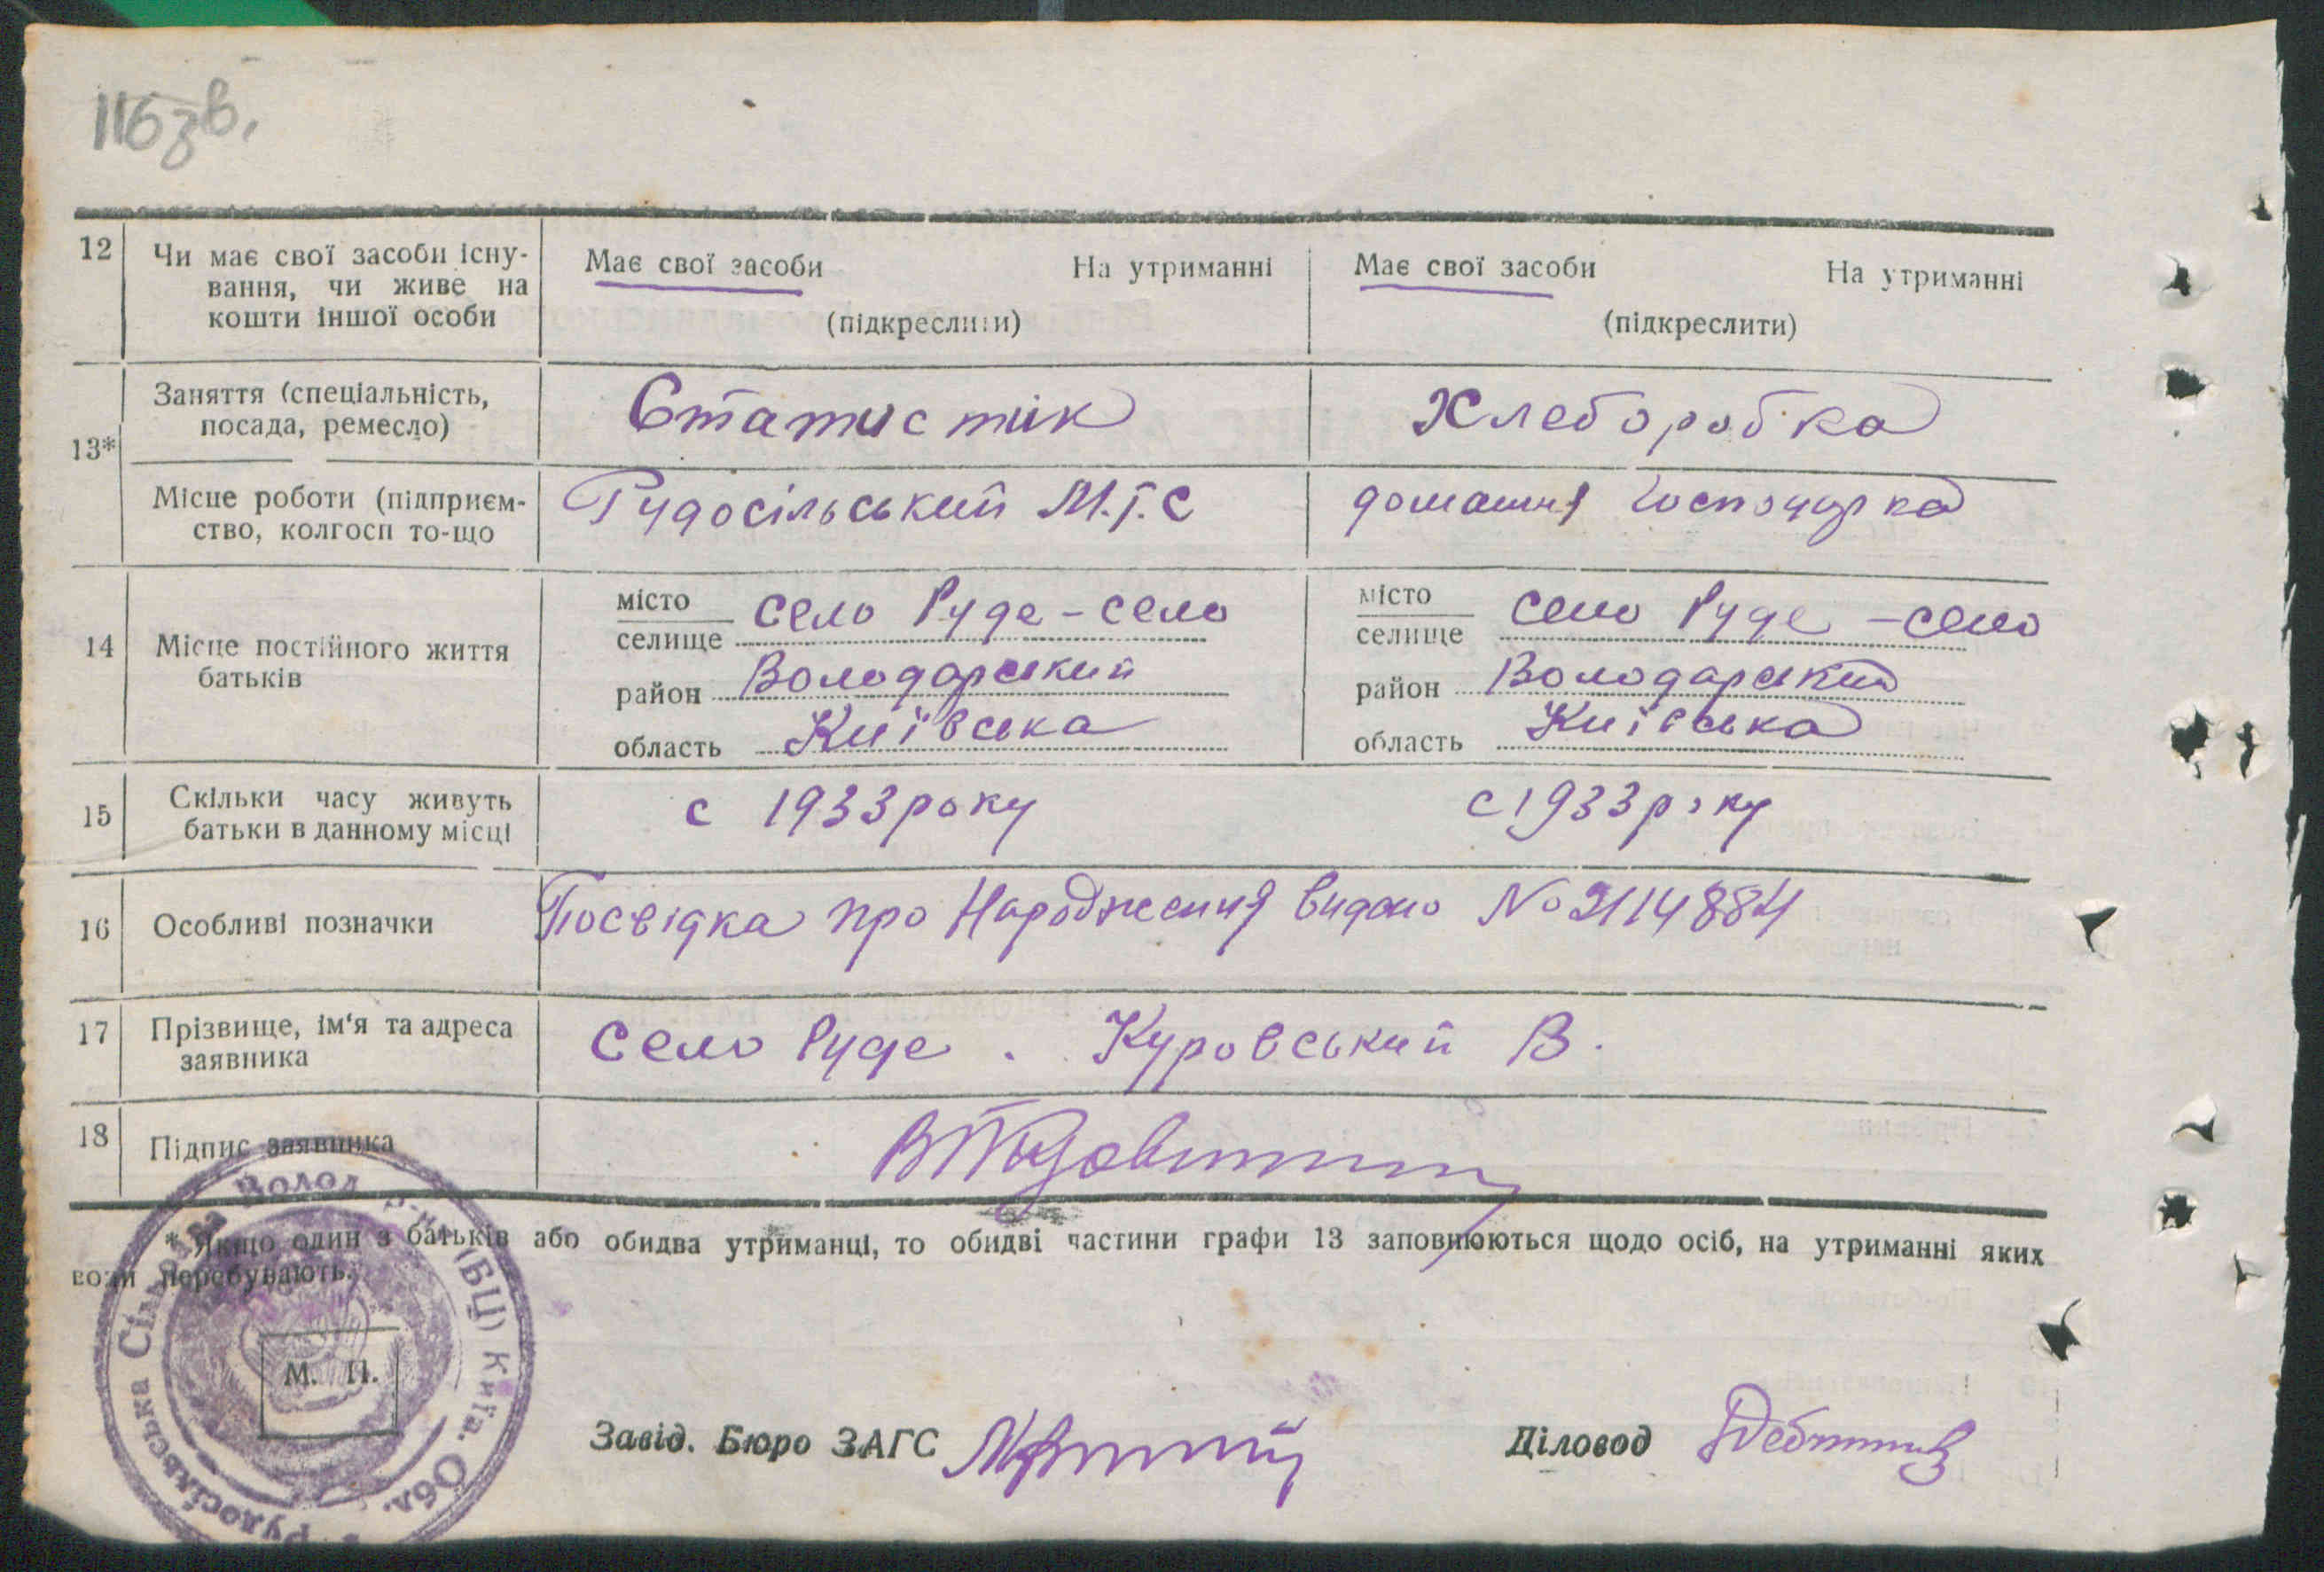 116 зв.
12
Чи має свої засоби існу-
вання, чи живе на
кошти іншої особи
Має свої засоби На утриманні
(підкреслити)
Має свої засоби На утриманні
(підкреслити)
13*
Заняття (спеціальність,
посада, ремесло)
Статистик
Хлеборобка
Місце роботи (підприєм-
ство, колгосп то-що
Рудосільський М.Т.С
домашня господарка
14
Місце постійного життя
батьків
місто
селище село Руде-село
район Володарський
область Київська
місто
селище село Руде-село
район Володарський
область Київська
15
Скільки часу живуть
батьки в данному місці
с 1933 року
с 1933 року
16
Особливі позначки
Посвідка про Народження видано No 2114884
17
Прізвище, ім'я та адреса
заявника
Село Руде. Куровський В.
18
Підпис заявника
* Якщо один з батьків або обидва утриманці, то обидві частини графи 13 заповнюються щодо осіб, на утриманні яких
вони перебувають.
М. П.
Рудосільська Сільрада Волод. р-н (БЦ) Київ. Обл.
Завід. Бюро ЗАГС
Діловод